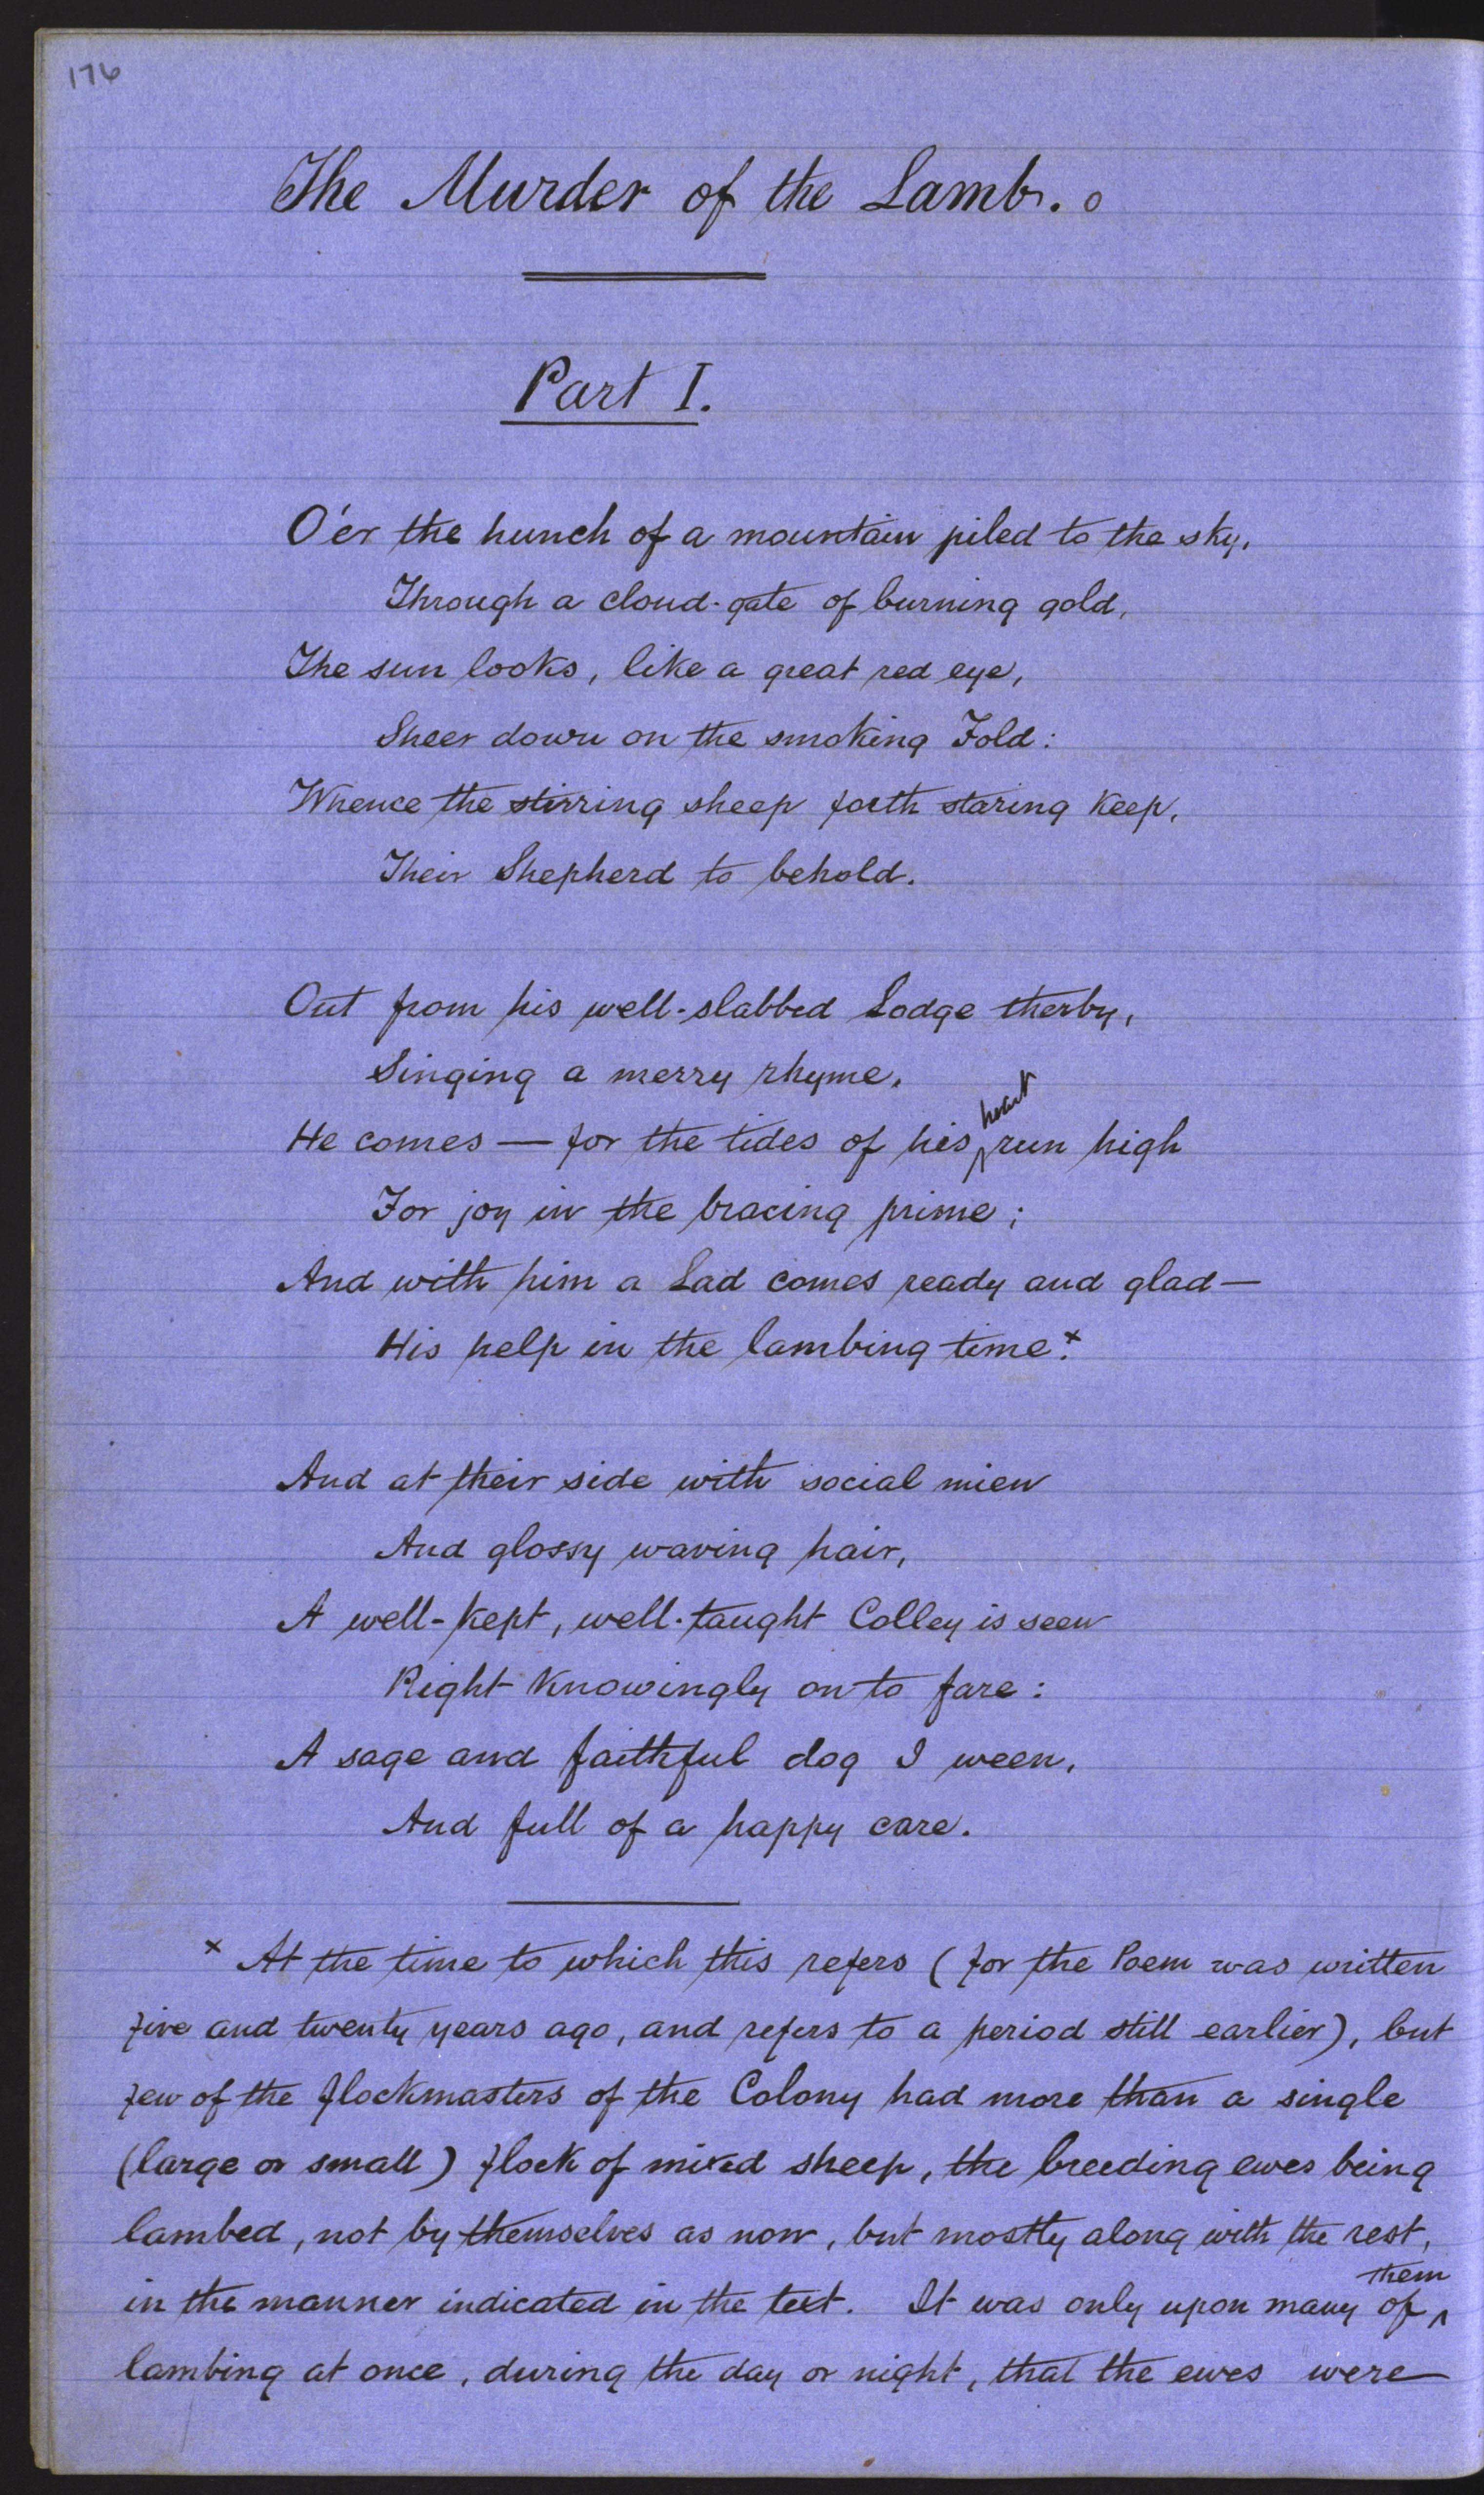 176
The Murder of the Lamb. o
Part I.
O'er the hunch of a mountain piled to the sky,
Through a cloud-gate of burning gold,
The sun looks, like a great red eye,
Sheer down on the smoking Fold:
Whence the stirring sheep forth staring keep,
Their Shepherd to behold.
Out from his well-slabbed Lodge therby,
Singing a merry rhyme,
He comes — for the tides of his heart run high
For joy in the bracing prime;
And with him a Lad comes ready and glad —
His help in the lambing time.x
And at their side with social mien
And glossy waving hair,
A well-kept, well-taught Colley is seen
Right knowingly on to fare:
A sage and faithful dog I ween,
And full of a happy care.
x At the time to which this refers (for the Poem was written
five and twenty years ago, and refers to a period still earlier), but
few of the flockmasters of the Colony had more than a single
(large or small) flock of mixed sheep, the breeding ewes being
lambed, not by themselves as now, but mostly along with the rest,
in the manner indicated in the text. It was only upon many of them
lambing at once, during the day or night, that the ewes were